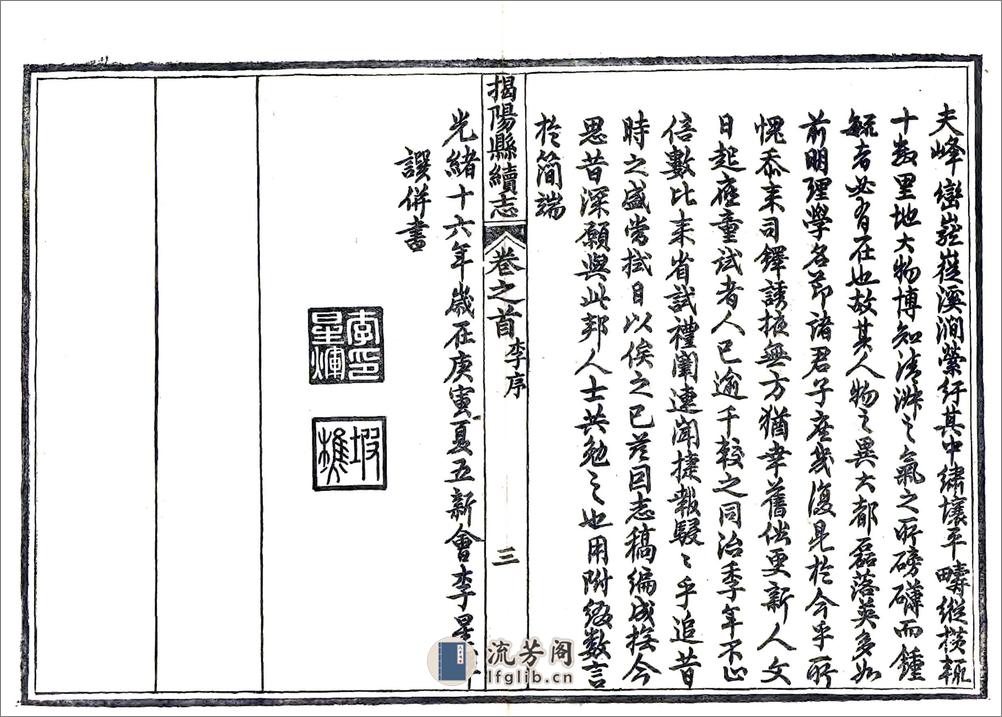 夫峰巒嶐嵸溪澗縈紆其中繡壤平疇縱横輒
十數里地大物博知清淑之氣之所磅礴而鍾
毓者必有在也故其人物之異大都磊落英多如
前明理學名節諸君子庶幾復見於今乎所
愧忝来司鐸誘掖無方猶幸舊俗更新人文
日起應童試者人已逾千較之同治季年不止
倍數比来省試禮闈連聞捷報駸〻乎追昔
時之盛當拭目以俟之已茲因志稿編成按今
思昔深願與此邦人士共勉之也用附綴數言
於简端
揭陽縣續志 卷之首 李序 三
光緒十六年歲在庚寅夏五新會李星
譔併書
李印星煇
坡樵
流芳阁
lfglib.cn